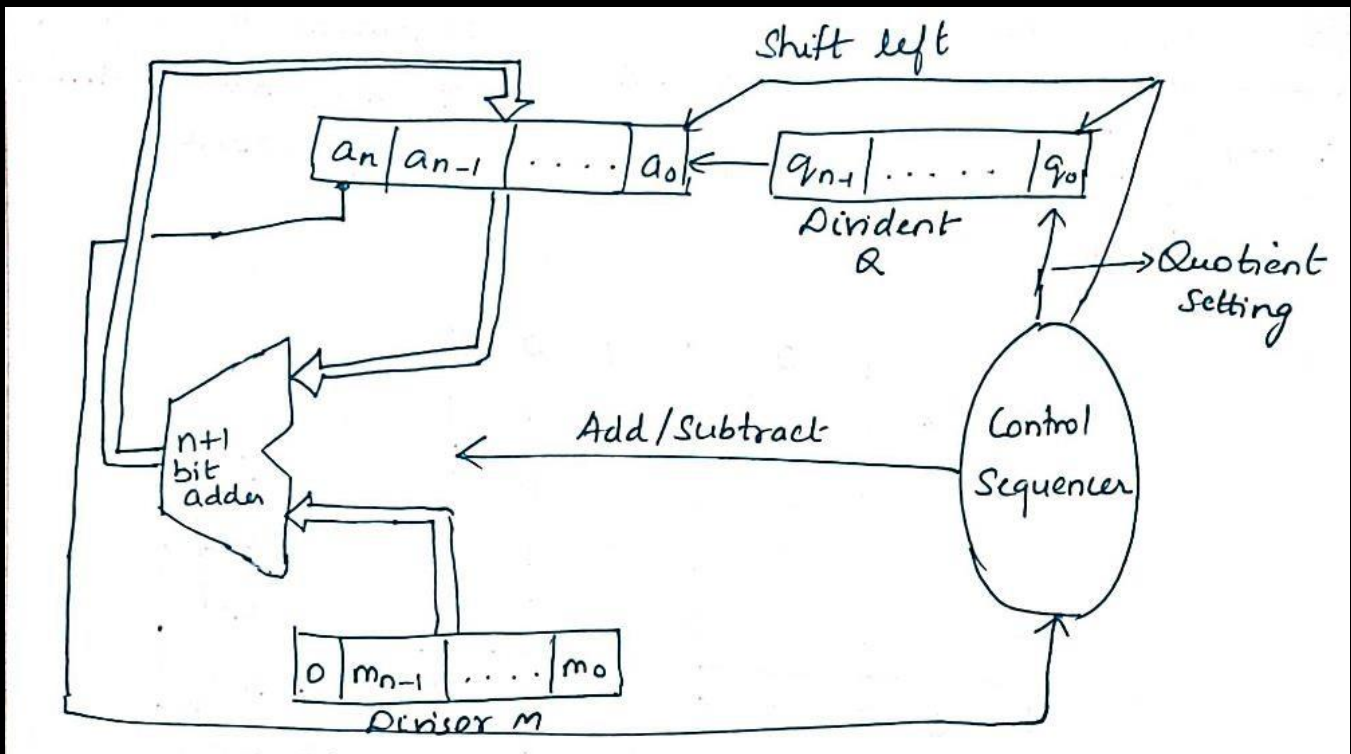 Shift left
an an-1 .... a0
qn-1 ..... q0
Divident
Q
Quotient
Setting
n+1
bit
adder
Add/Subtract
Control
Sequencer
0 mn-1 .... m0
Divisor M